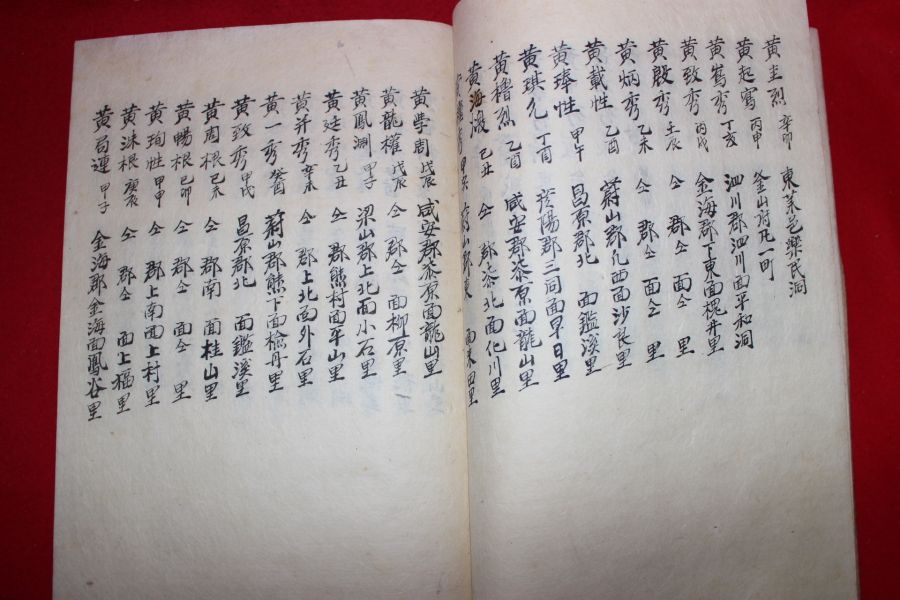 黄圭烈 辛卯 東萊邑樂民洞
黄起寯 丙申 釜山府 一町
黄寯秀 丁亥 泗川郡泗川面平和洞
黄致秀 丙戌 金海郡下東面槐井里
黄殷秀 壬辰 仝 郡仝 面仝 里
黄炳秀 乙未 仝 郡仝 面仝 里
黄載性 乙酉 蔚山郡凡西面沙良里
黄琫性 甲午 昌原郡北 面鑑溪里
黄琪允 丁酉 陽郡三同面早日里
黄櫓烈 乙酉 咸安郡漆原面龍山里
黄海 己丑 仝 郡漆北面化川里
秀 蔚山郡東 面 里
黄学周 戊辰 咸安郡漆原面龍山里
黄龍權 戊辰 仝 郡仝 面柳原里
黄鳳渕 甲子 梁山郡上北面小石里
黄廷秀 乙丑 仝 郡熊村面平山里
黄 秀 辛未 仝 郡上北面外石里
黄一秀 癸酉 蔚山郡熊下面 丹里
黄致秀 甲戌 昌原郡北 面鑑溪里
黄周根 己未 仝 郡南 面桂山里
黄暢根 己卯 仝 郡仝 面仝 里
黄珣性 甲申 仝 郡上南面上村里
黄洙根 庚辰 仝 郡仝 面上福里
黄局連 甲子 金海郡金海面鳳谷里